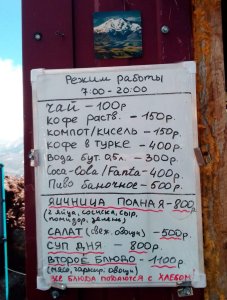 Режим работы
7:00 - 20:00
чай - 100р.
кофе раств. - 150р.
компот/кисель - 150р.
кофе в турке - 400р.
вода бут. 0,5л. - 300р.
Coca-Cola/Fanta - 400р.
Пиво баночное - 500р.
ЯИЧНИЦА ПОЛНАЯ - 800р.
(2 яйца, сосиска, сыр,
помидор, зелень)
САЛАТ (свеж. овощи) - 500р.
СУП ДНЯ - 800р.
ВТОРОЕ БЛЮДО - 1100р.
(мясо, гарнир, овощи)
ВСЕ БЛЮДА ПОДАЮТСЯ С ХЛЕБОМ